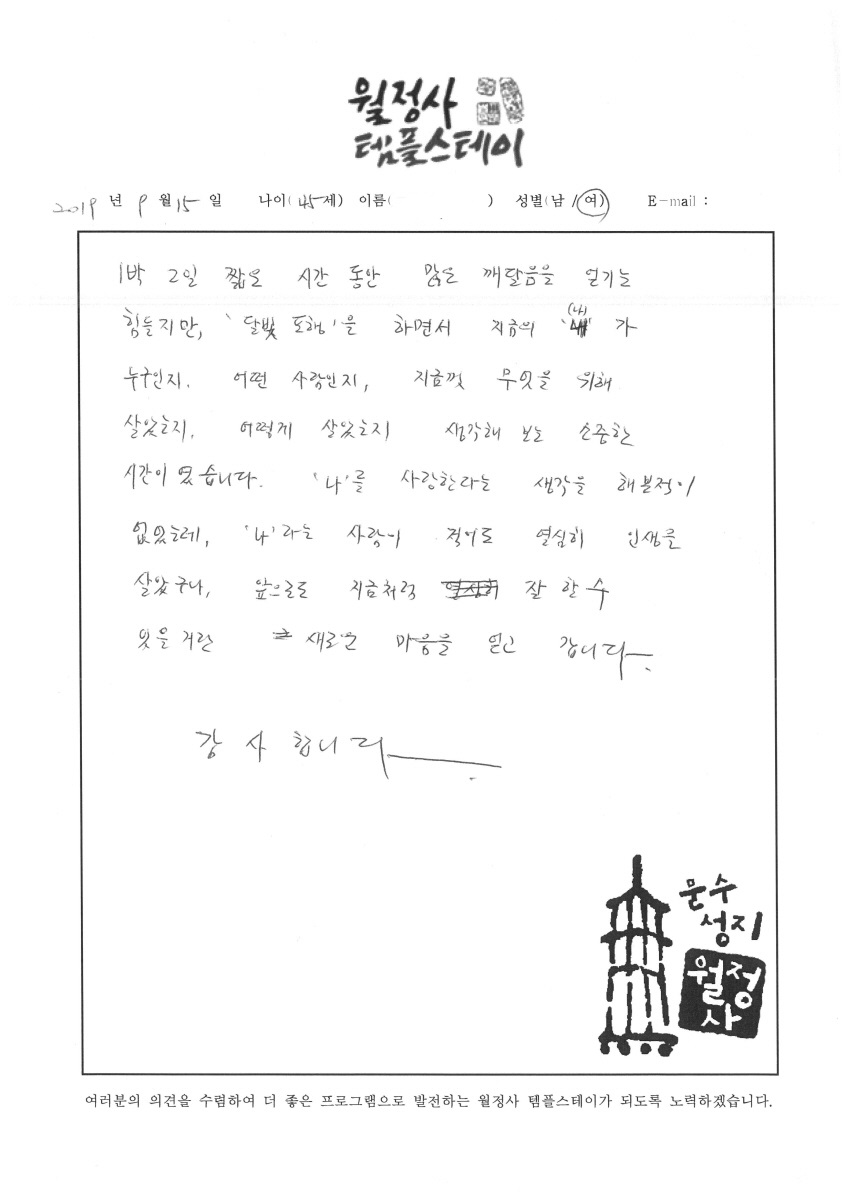 월정사
템플스테이
2019 년 9 월 15 일 나이( 45 세) 이름( ) 성별(남 / 여) E-mail :
1박 2일 짧은 시간 동안 많은 깨달음을 얻기는
힘들지만, '달빛 포행'을 하면서 지금의 '(나)' 가
누구인지. 어떤 사람인지, 지금껏 무엇을 위해
살았는지, 어떻게 살았는지 생각해 보는 소중한
시간이 였습니다. '나'를 사랑한다는 생각을 해본적이
없었는데, '나'라는 사람이 적어도 열심히 인생을
살았구나, 앞으로도 지금처럼 잘 할 수
있을 거란 새로운 마음을 얻고 갑니다.
감사합니다.
문수
성지
월정
사
여러분의 의견을 수렴하여 더 좋은 프로그램으로 발전하는 월정사 템플스테이가 되도록 노력하겠습니다.